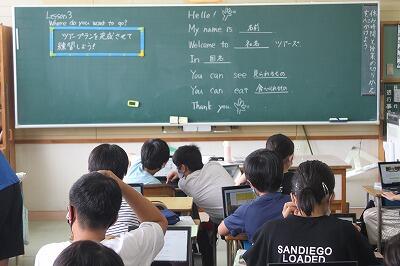 Lesson 3
Where do you want to go?
ツアープランを完成させて
練習しよう!
Hello!
My name is 名前
Welcome to 社名 ツアーズ
In 国名
You can see 見られるもの
You can eat 食べられるもの
Thank you
SANDIEGO
FOLLOWED